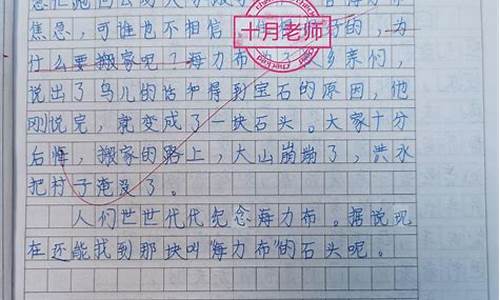 焦急，可谁也不相信
十月老师
什么要搬家呢？海力布为了乡亲们，
说出了鸟儿的话和得到宝石的原因，他
刚说完，就变成了一块石头。大家十分
后悔，搬家的路上，大山崩崩了，洪水
把村子淹没了。
人们世世代代纪念海力布。据说现
在还能找到那块叫“海力布”的石头呢。